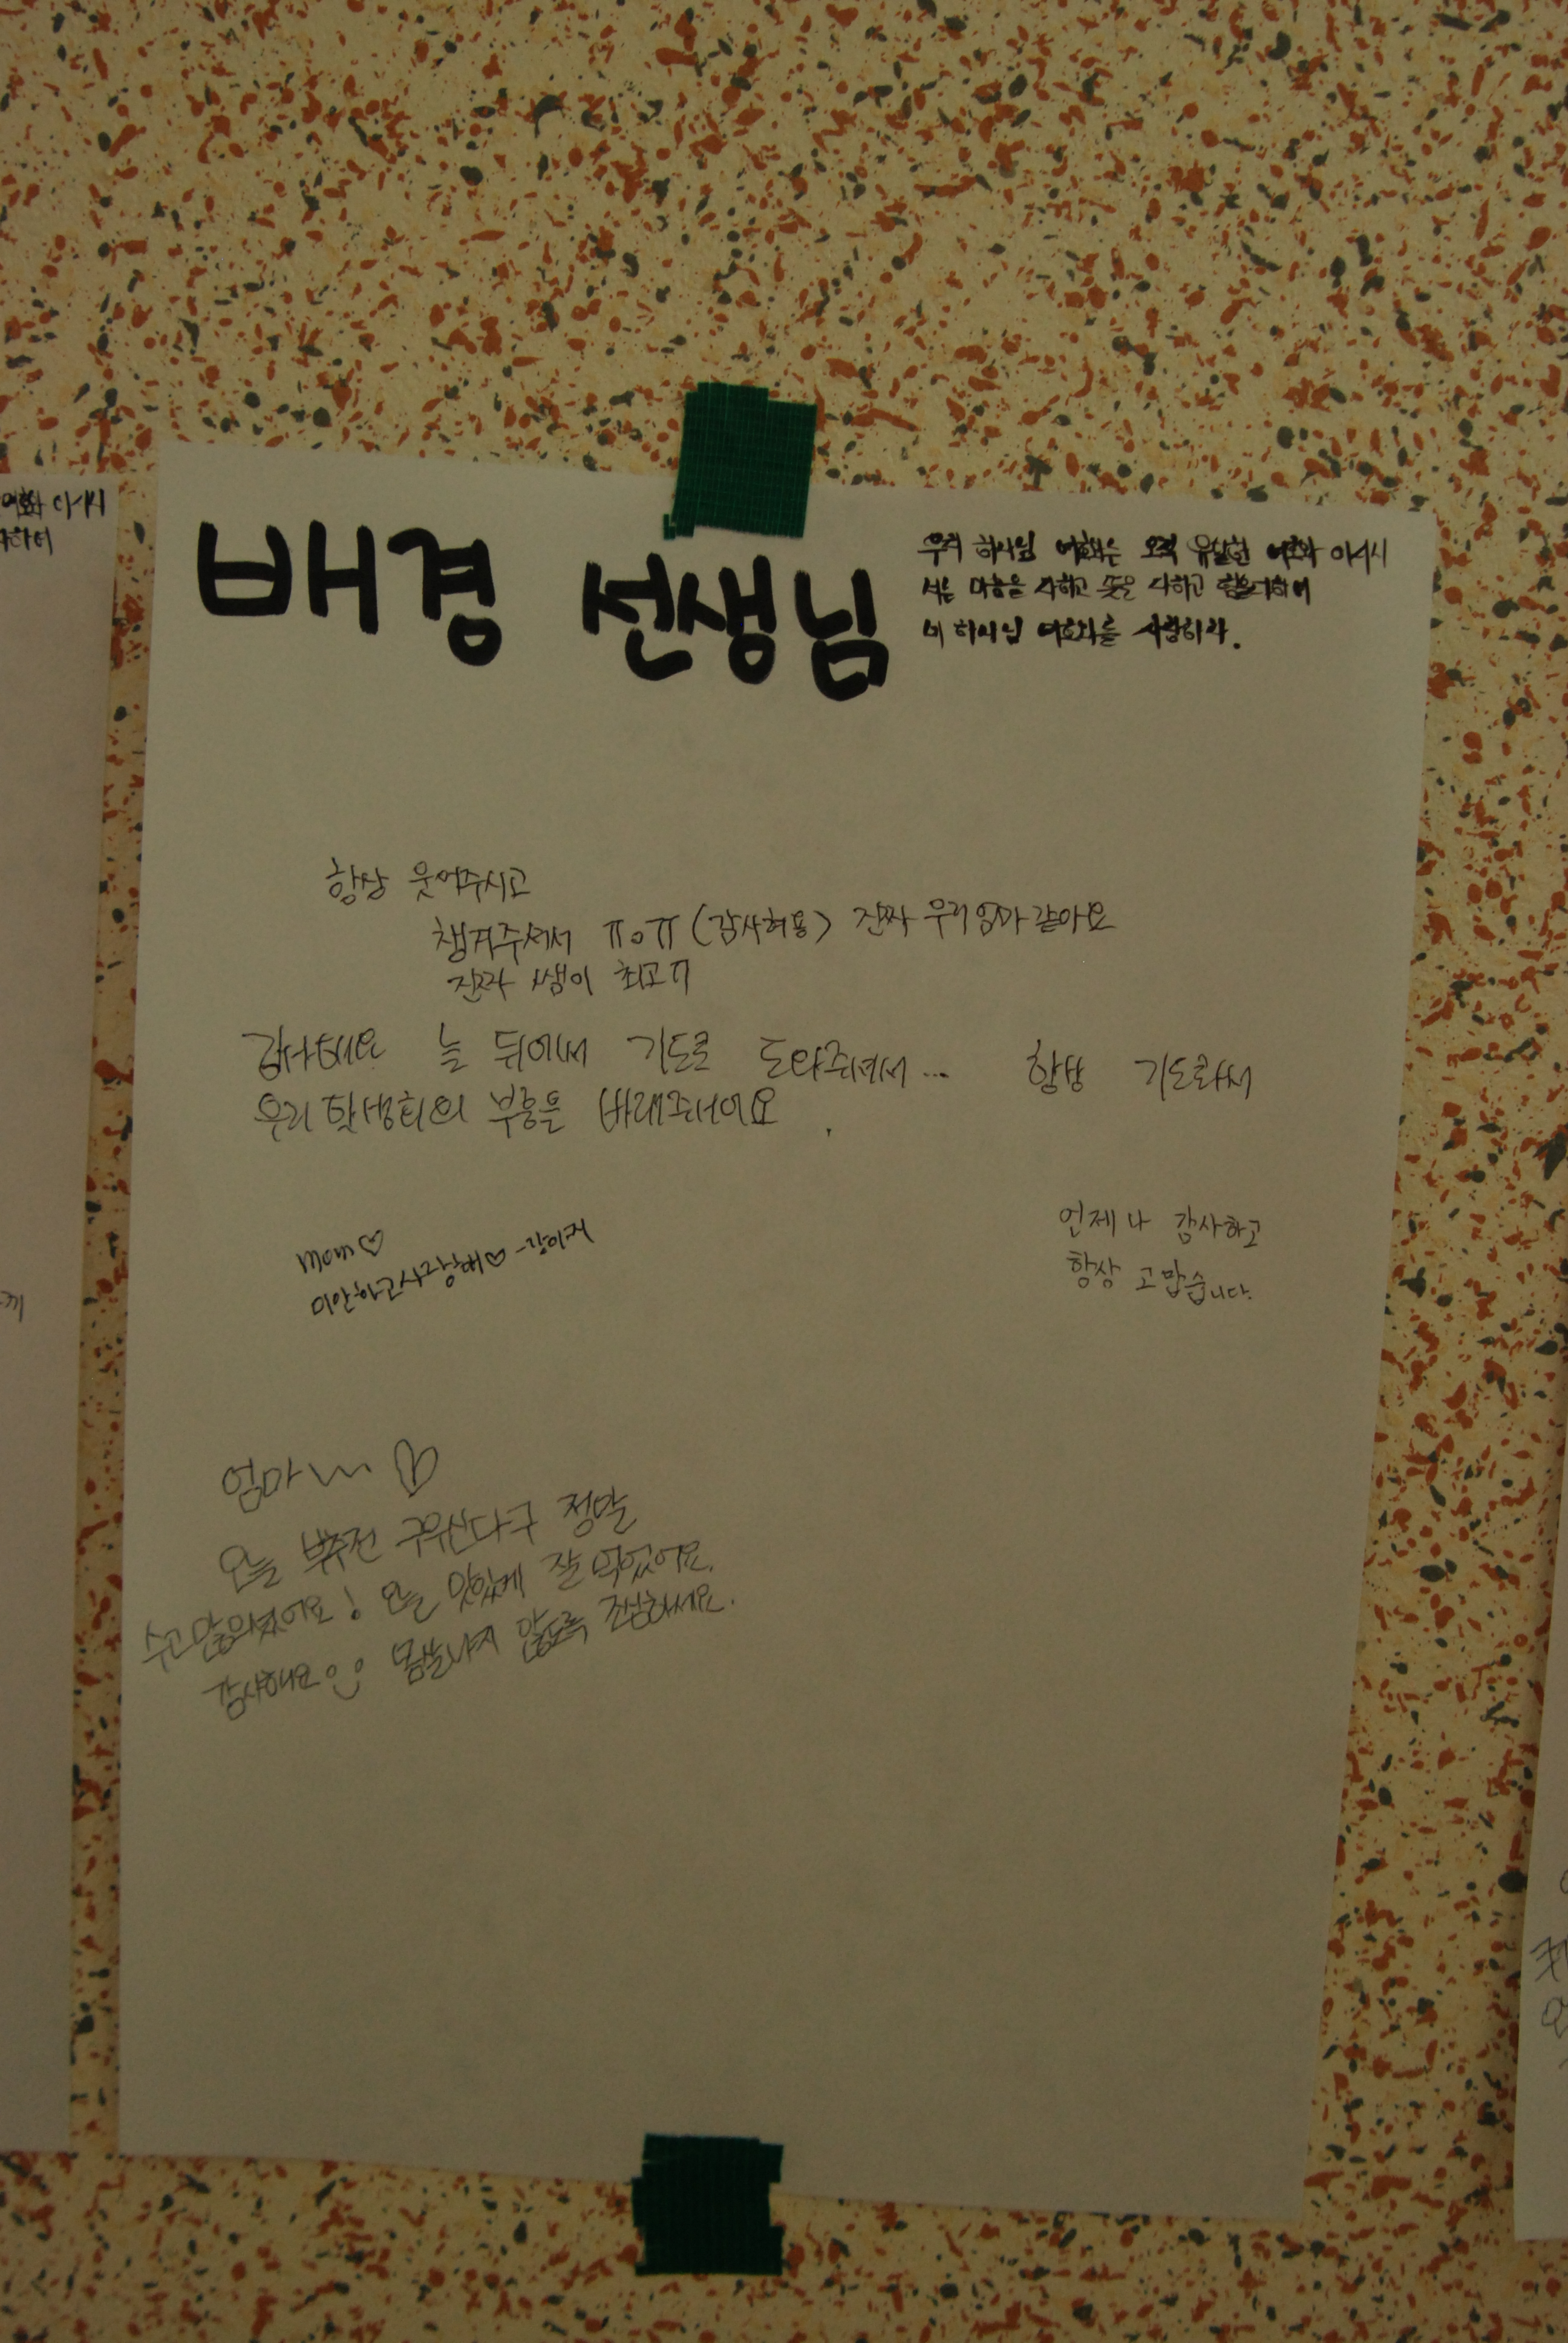 배경 선생님
우리 하나님 여호와는 오직 유일한 여호와 이시니
너는 마음을 다하고 뜻을 다하고 힘을다하여
네 하나님 여호와를 사랑하라.
항상 웃어주시고
챙겨주셔서 ㅠㅇㅠ (감사허용) 진짜 우리엄마같아요
진짜 쌤이 최고ㅠ
감사해요 늘 뒤에서 기도로 도와주셔서... 항상 기도하셔
우리 학생회의 부흥을 바래주셔어요
mom♡
미안하고사랑해♡
언제나 감사하고
항상 고맙습니다.
엄마~ ♡
오늘 부추전 구우신다구 정말
수고많으셨어요! 오늘 맛있게 잘 먹었어요.
감사해요 몸살나지 않도록 조심하세요.
여호와 이시니